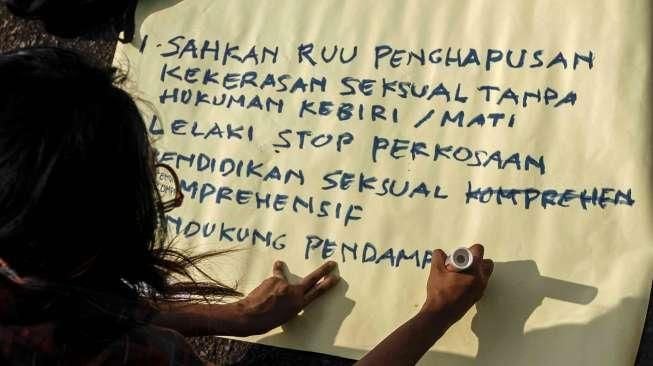 1. SAHKAN RUU PENGHAPUSAN
KEKERASAN SEKSUAL TANPA
HUKUMAN KEBIRI / MATI
LELAKI STOP PERKOSAAN
ENDIDIKAN SEKSUAL KOMPREHEN
OMPREHENSIF
NDUKUNG PENDAMP